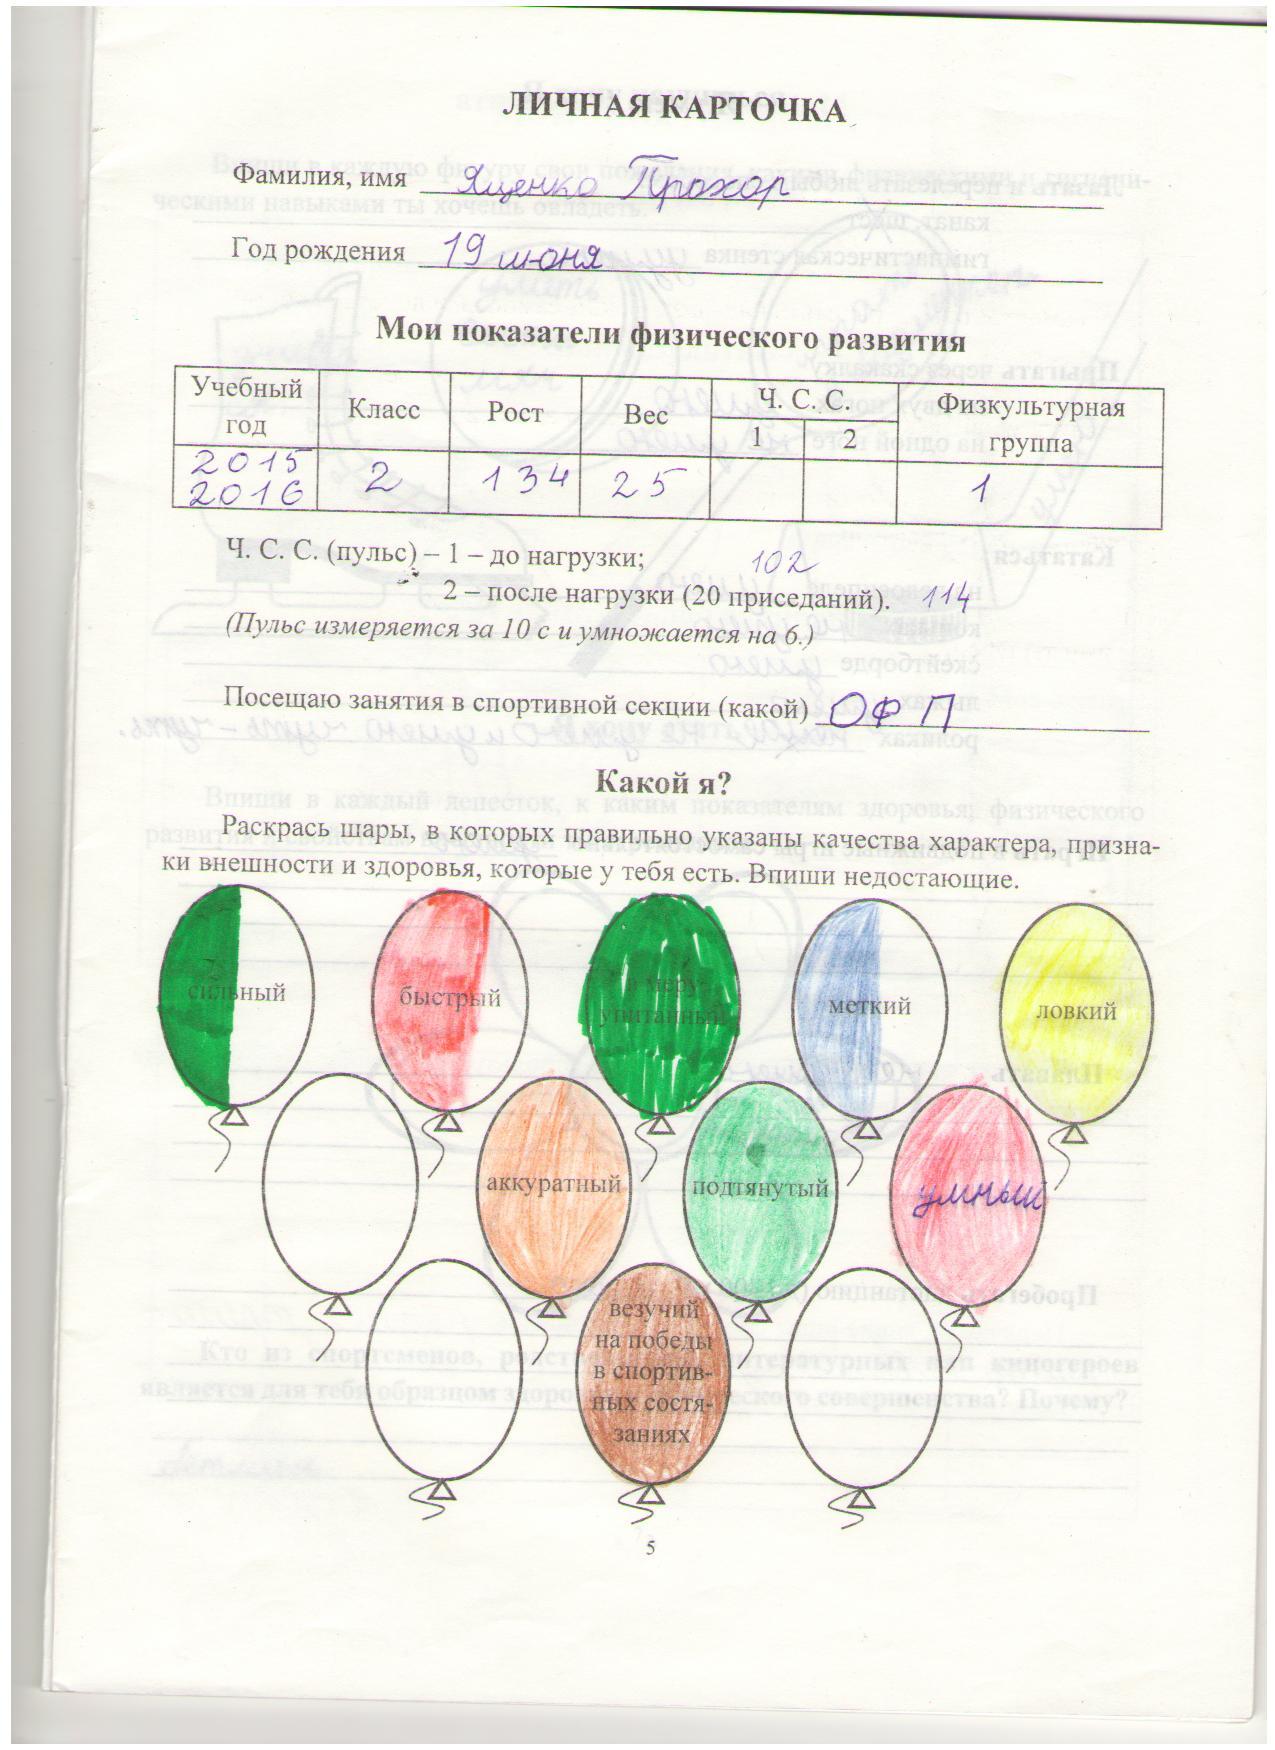 ЛИЧНАЯ КАРТОЧКА
Фамилия, имя Ященко Прохор
Год рождения 19 июня
Мои показатели физического развития
Учебный год Класс Рост Вес Ч. С. С. Физкультурная группа
1 2
2015 2016 2 134 25 1
Ч. С. С. (пульс) – 1 – до нагрузки; 102
2 – после нагрузки (20 приседаний). 114
(Пульс измеряется за 10 с и умножается на 6.)
Посещаю занятия в спортивной секции (какой) ОФП
Какой я?
Раскрась шары, в которых правильно указаны качества характера, призна-
ки внешности и здоровья, которые у тебя есть. Впиши недостающие.
сильный
быстрый
в меру
упитанный
меткий
ловкий
аккуратный
подтянутый
умный
везучий
на победы
в спортив-
ных состя-
заниях
5